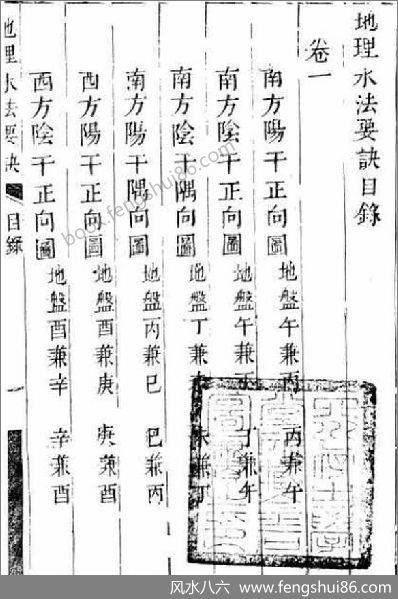 地理水法要訣目錄
卷一
南方陽干正向圖 地盤午兼丙 丙兼午
南方陰干正向圖 地盤午兼丁 丁兼午
南方陰干隅向圖 地盤丁兼未 未兼丁
南方陽干隅向圖 地盤丙兼巳 巳兼丙
西方陽干正向圖 地盤酉兼庚 庚兼酉
西方陰干正向圖 地盤酉兼辛 辛兼酉
地理水法要决 目錄
book.fengshui86.com
风水八六 www.fengshui86.com